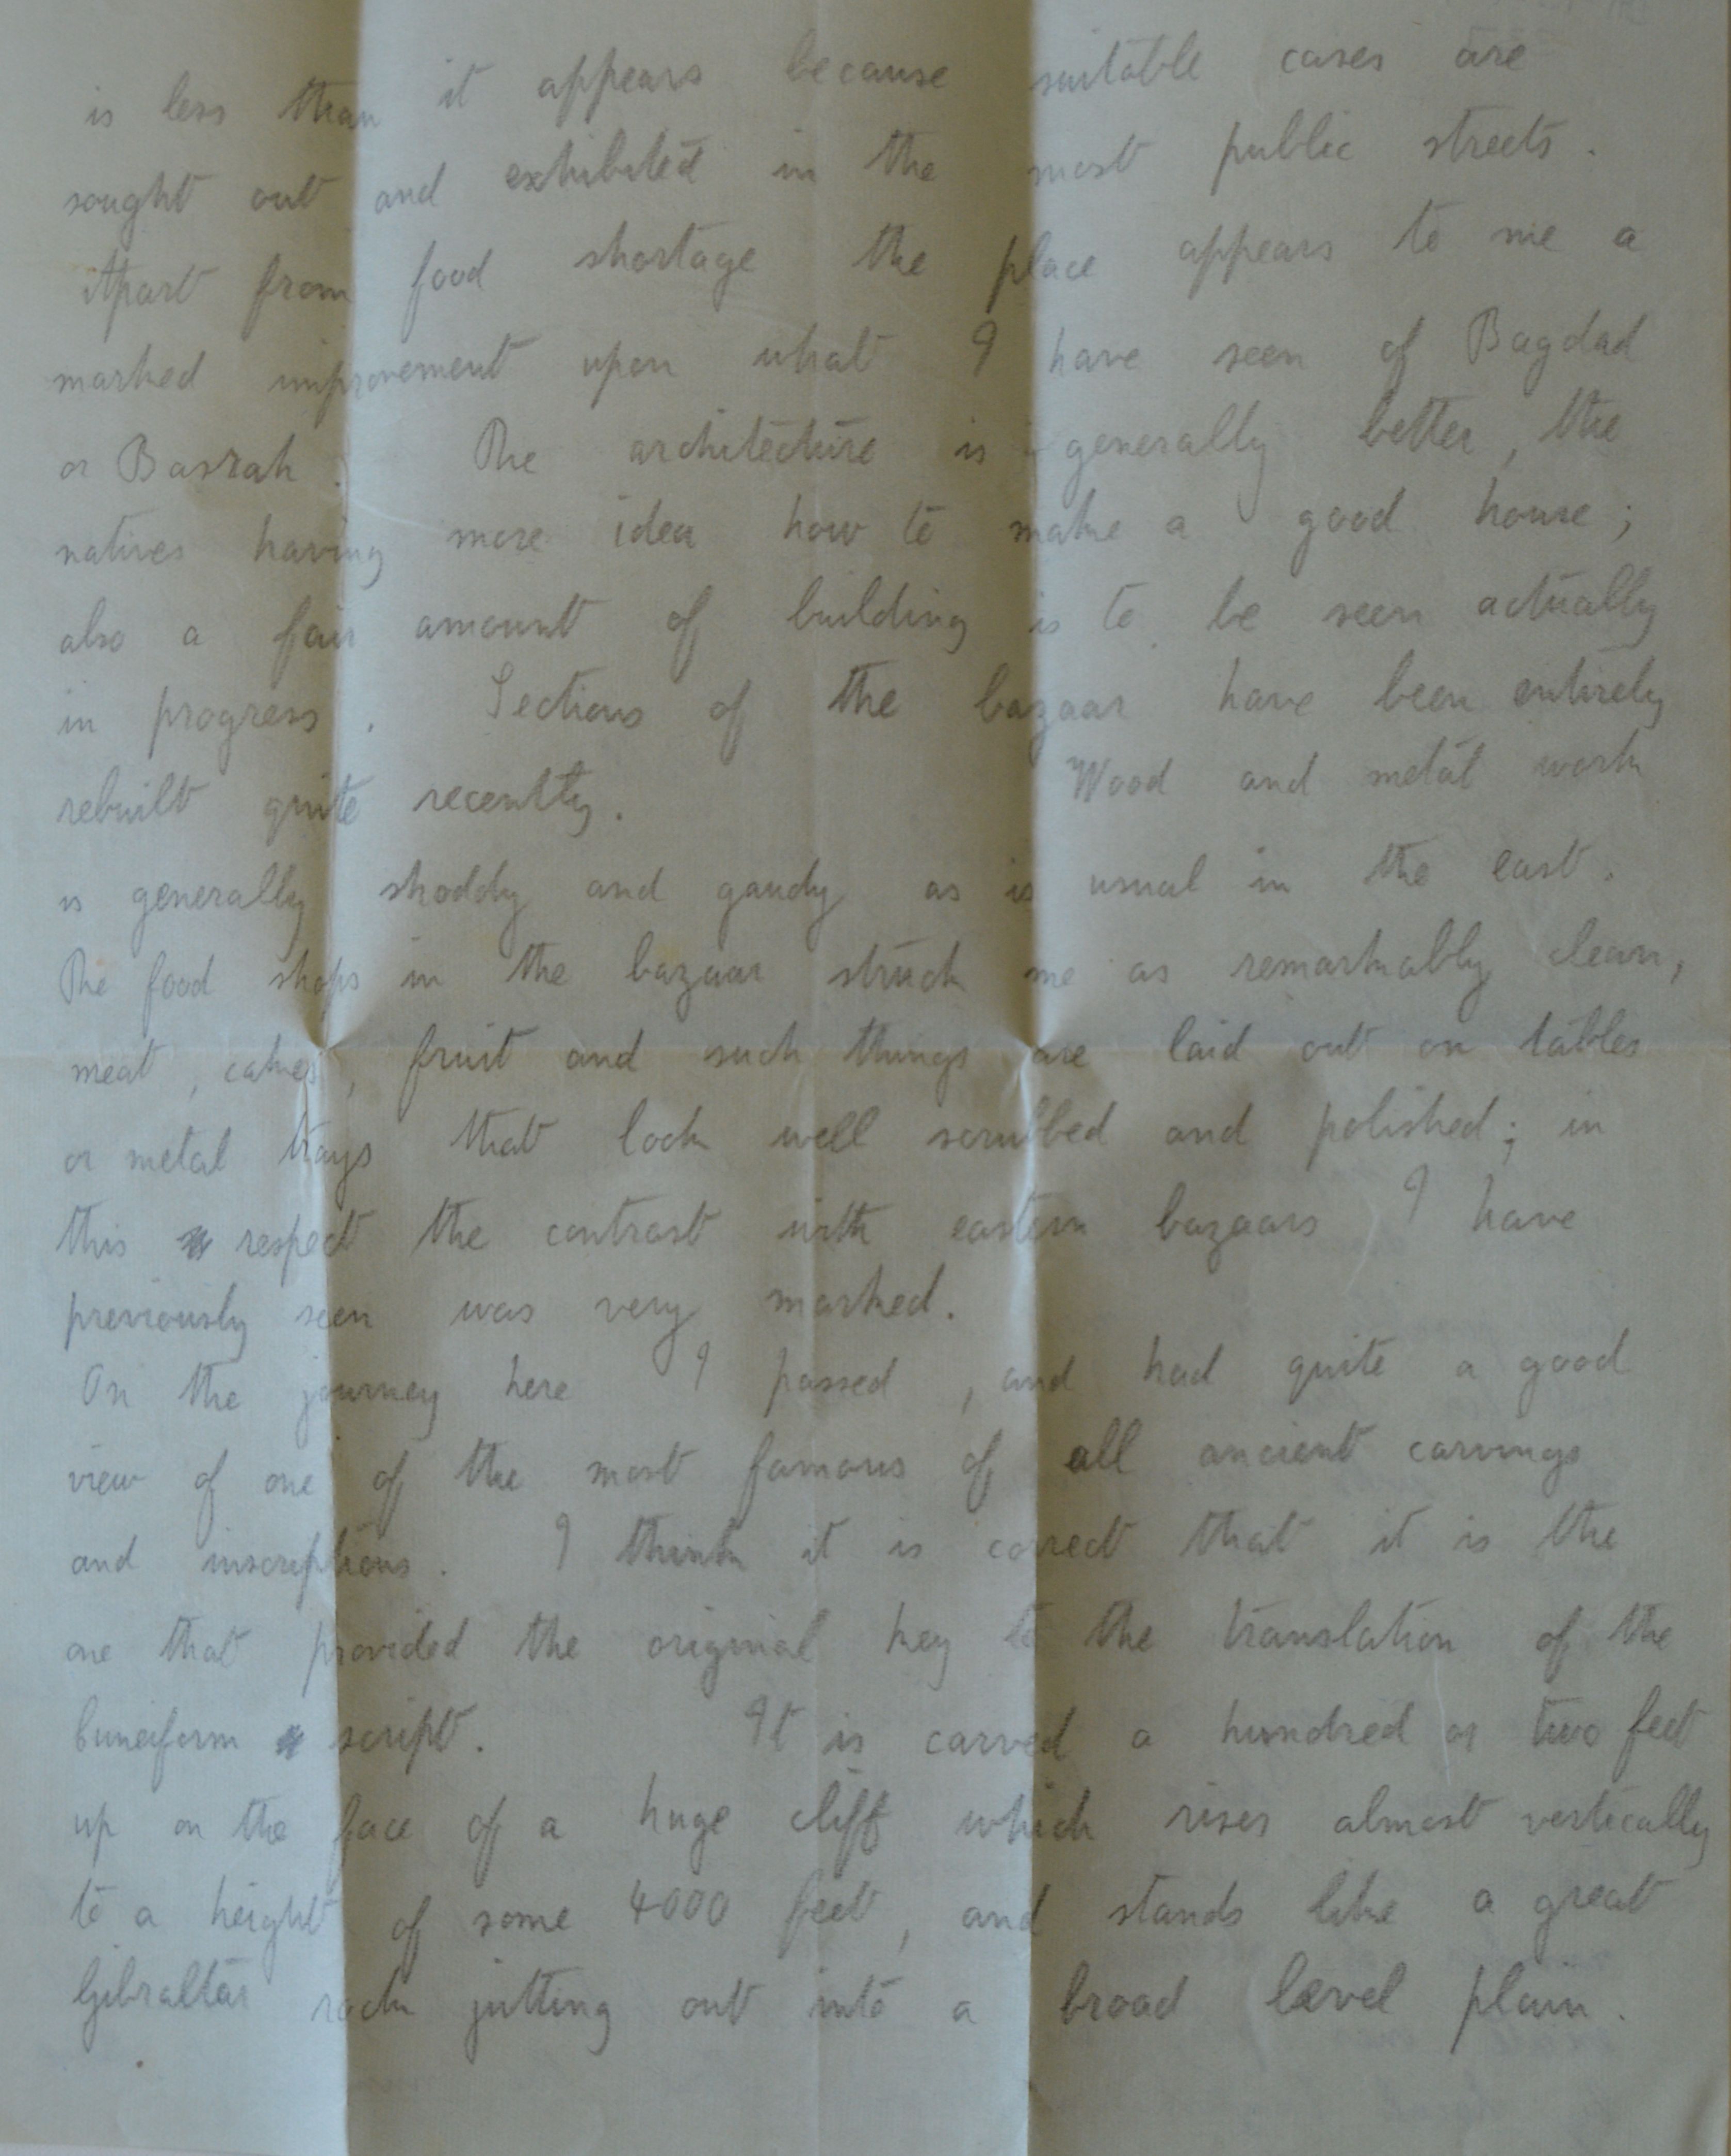 is less than it appears because suitable cases are
sought out and exhibited in the most public streets.
Apart from food shortage the place appears to me a
marked improvement upon what I have seen of Bagdad
or Basrah. The architecture is generally better, the
natives having more idea how to make a good house;
also a fair amount of building is to be seen actually
in progress. Sections of the bazaar have been entirely
rebuilt quite recently. Wood and metal work
is generally shoddy and gaudy as is usual in the east.
The food shops in the bazaar struck me as remarkably clean,
meat, cakes, fruit and such things are laid out on tables
or metal trays that look well scrubbed and polished; in
this respect the contrast with eastern bazaars I have
previously seen was very marked.
On the journey here I passed, and had quite a good
view of one of the most famous of all ancient carvings
and inscriptions. I think it is correct that it is the
one that provided the original key to the translation of the
Cuneiform script. It is carved a hundred or two feet
up on the face of a huge cliff which rises almost vertically
to a height of some 4000 feet, and stands like a great
Gibraltar rock jutting out into a broad level plain.